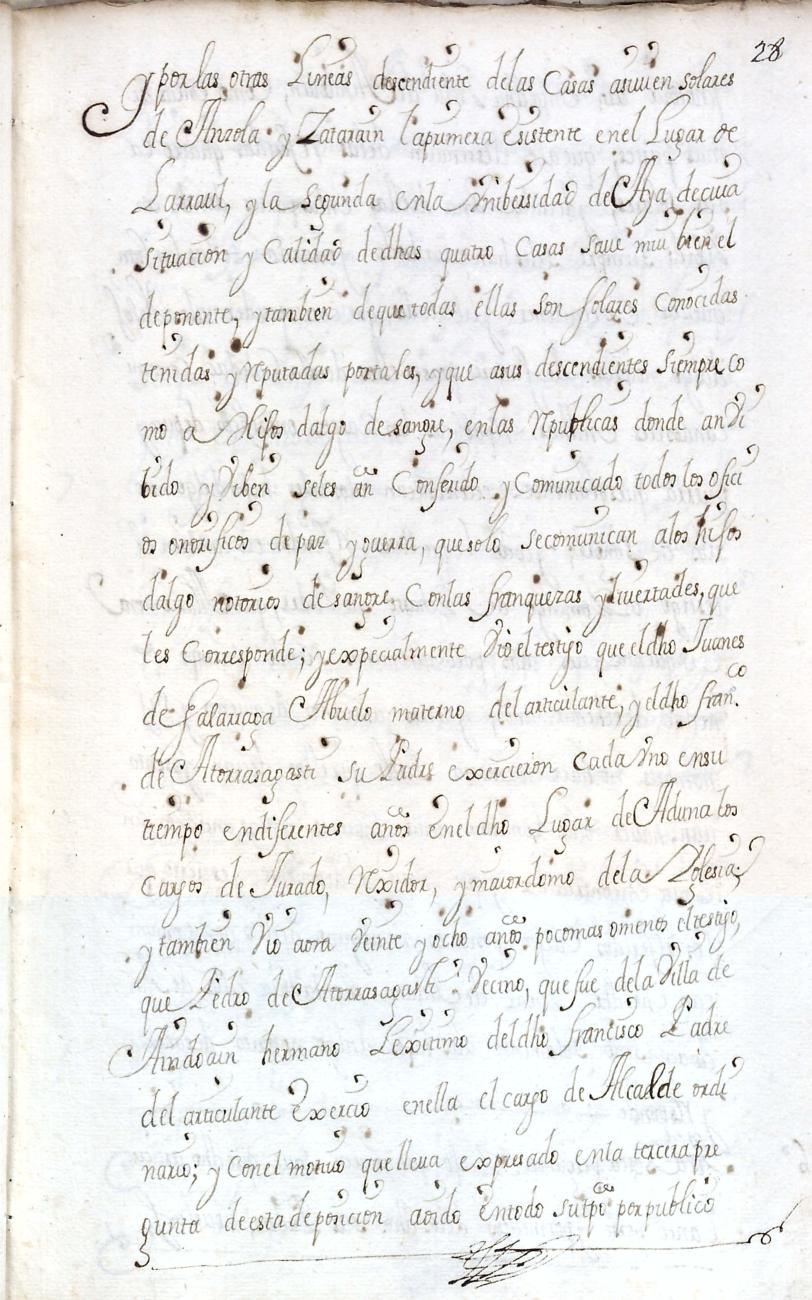 28
y por las otras Lineas descendiente delas Casas asimien solares
de Anzola y Zatarain la primera Esistente enel Lugar de
Larraul, y la Segunda enla Vnibersidad de Aya de cuia
Situacion y Calidad dedhas quatro Casas save mui bien el
deponente, y tambien deque todas ellas son solares Conocidas
tenidas y Reputadas portales, y que asus descendientes siempre co
mo a Hijos dalgo de sangre, enlas Republicas donde an vi
bido y viben seles an Conferido y Comunicado todos los ofici
os onorificos de paz y guerra, que solo se comunican alos hijos
dalgo notorios de sangre, Conlas franquezas y livertades, que
les Corresponde; y expecialmente Vio el testigo que eldho Juanes
de Galarraga Abuelo materno del articulante, y eldho fran.co
de Atorrasagasti su Padre exercieron cada Vno ensu
tiempo endiferentes años enel dho Lugar de Aduna los
Cargos de Jurado, Rexidor, y maiordomo dela Yglesia;
y tambien Vio aora Veinte y ocho años poco mas omenos el testigo,
que Pedro de Atorrasagasti Vecino, que fue dela Villa de
Andoain hermano Lexitimo deldho francisco Padre
del articulante Exercio enella el cargo de Alcalde ordi
nario; y Conel motivo que lleva expresado enla tercera pre
gunta deesta deposicion aoido entodo su tpo por publico